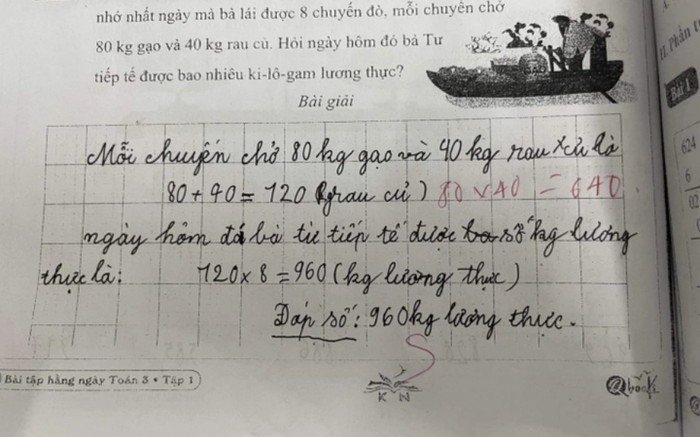 nhớ nhất ngày mà bà lái được 8 chuyến đò, mỗi chuyến chở
80 kg gạo và 40 kg rau củ. Hỏi ngày hôm đó bà Tư
tiếp tế được bao nhiêu ki-lô-gam lương thực?
Bài giải
Mỗi chuyến chở 80 kg gạo và 40 kg rau củ là
80 + 40 = 120 (rau củ) 80 x 40 = 640
ngày hôm đó bà tư tiếp tế được số kg lương
thực là: 120 x 8 = 960 (kg lương thực)
Đáp số: 960kg lương thực.
S
Bài tập hằng ngày Toán 3 • Tập 1
K N
@book
II. Phần
Bài 1
624
6
02